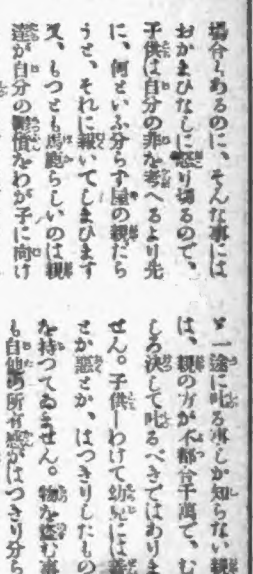 場合もあるのに、そんな事には
おかまひなしに怒り切るので、
子供は自分の非を考へるより先
に、何といふ分らず屋の親だら
うと、それに報いてしまひます
又、もつとも馬鹿らしいのは親
達が自分の鬱憤をわが子に向け
と一途に叱る事しか知らない親
は、親の方が不都合千萬で、む
しろ決して叱るべきではありま
せん。子供ーわけて幼児には善
とか惡とか、はつきりしたもの
を持つてゐません。物を盗む事
も自他の所有感がはつきり分ら